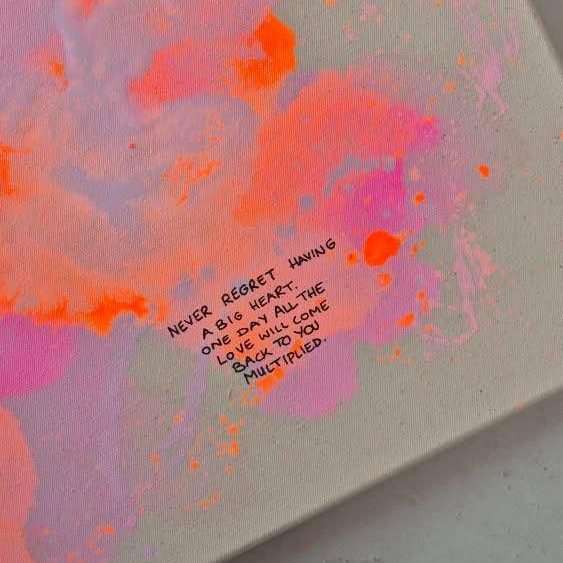 NEVER REGRET HAVING
A BIG HEART.
ONE DAY ALL THE
LOVE WILL COME
BACK TO YOU
MULTIPLIED.